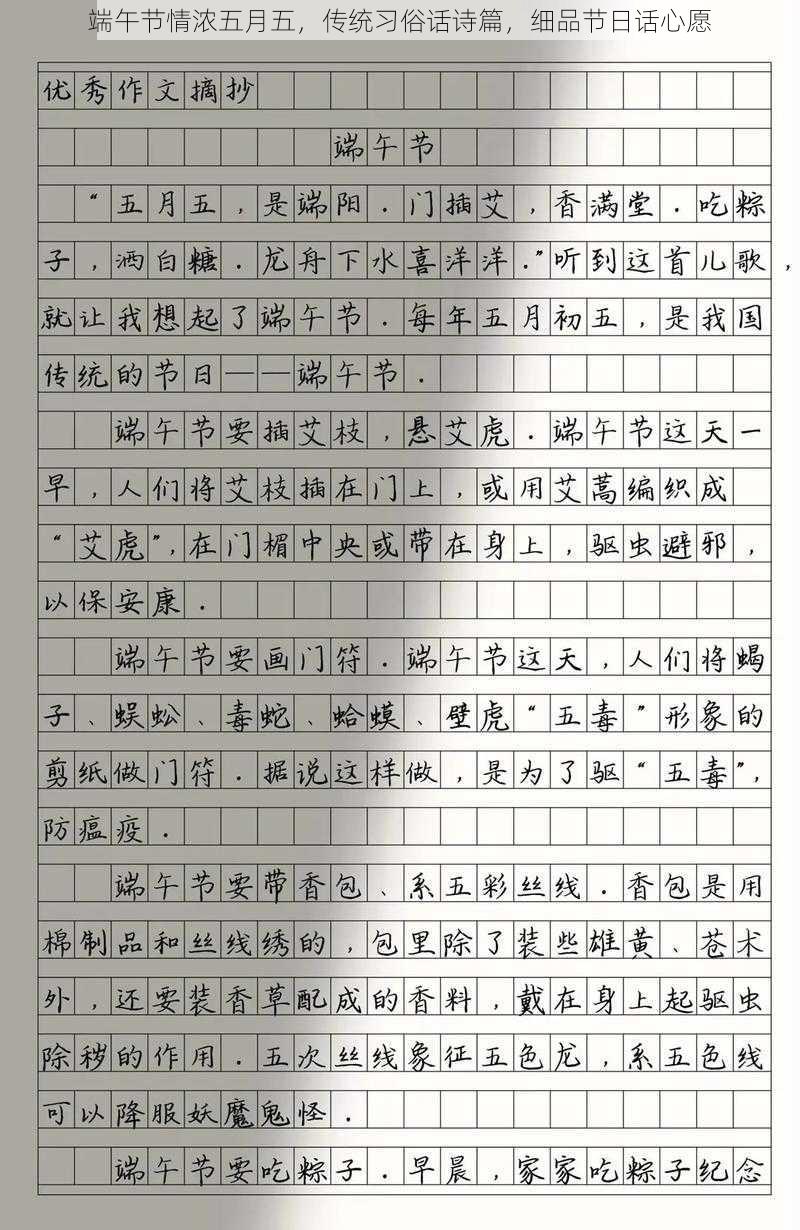 端午节情浓五月五，传统习俗话诗篇，细品节日话心愿
优秀作文摘抄
端午节
“五月五，是端阳．门插艾，香满堂．吃粽
子，洒白糖．龙舟下水喜洋洋．”听到这首儿歌，
就让我想起了端午节．每年五月初五，是我国
传统的节日——端午节．
端午节要插艾枝，悬艾虎．端午节这天一
早，人们将艾枝插在门上，或用艾蒿编织成
“艾虎”，在门楣中央或带在身上，驱虫避邪，
以保安康．
端午节要画门符．端午节这天，人们将蝎
子、蜈蚣、毒蛇、蛤蟆、壁虎“五毒”形象的
剪纸做门符．据说这样做，是为了驱“五毒”，
防瘟疫．
端午节要带香包、系五彩丝线．香包是用
棉制品和丝线绣的，包里除了装些雄黄、苍术
外，还要装香草配成的香料，戴在身上起驱虫
除秽的作用．五次丝线象征五色龙，系五色线
可以降服妖魔鬼怪．
端午节要吃粽子．早晨，家家吃粽子纪念